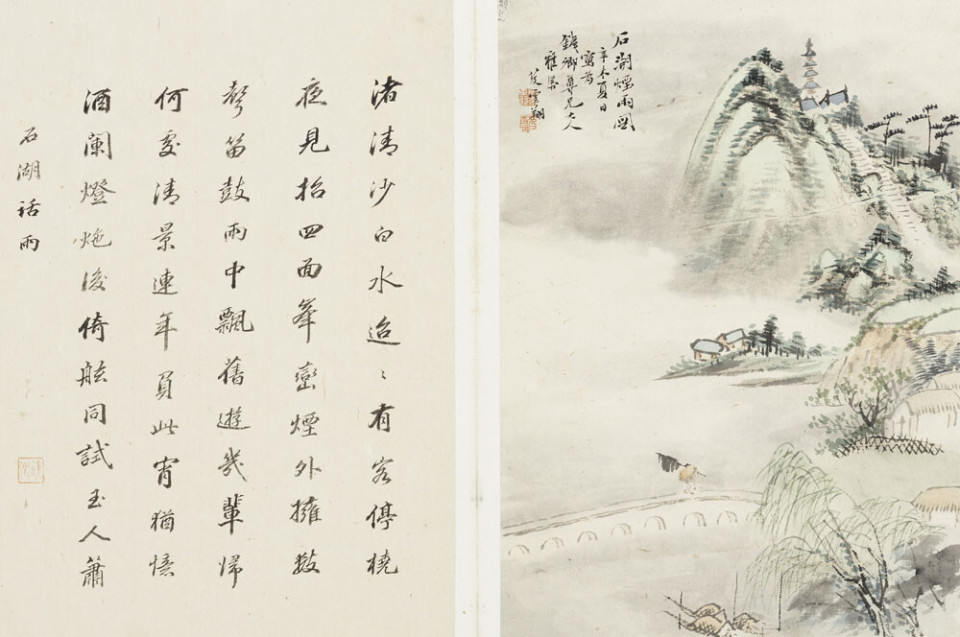 石湖煙雨圖
辛未夏日
寫爲
卿尊兄大人
雅
翔
渚清沙白水迢〻有客停橈
夜見招四面峯巒煙外擁數
聲笛鼓雨中飄舊遊幾輩歸
何處清景連年負此宵猶憶
酒闌燈灺後倚舷同試玉人簫
石湖話雨